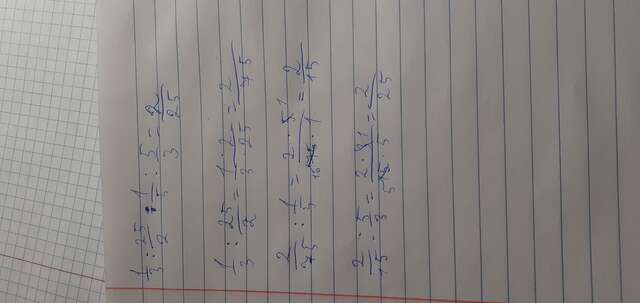 1/3 : 25/2 : 1/5 : 5/3 = 2/25
1/3 : 25/2 = 1·2/3·25 = 2/75
2/75 : 1/5 = 2·5 1/15 75·1 = 2/15
2/15 : 5/3 = 2·3 1/5 15·5 = 2/25